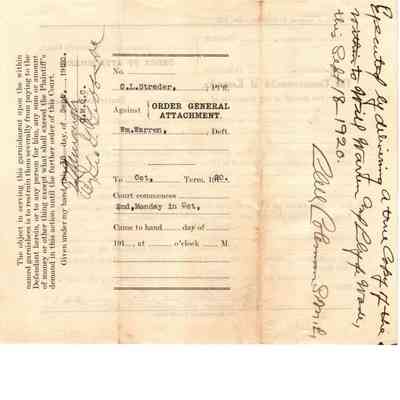 The object in serving this garnishment upon the within
named garnishees is to restrain them severally from paying to the
Defendant herein, or to any person for him, any sum or amount
of money or other thing except what shall exceed the Plaintiff's
demand in this action until the further order of this Court.
Given under my hand, this day of Sept, 1920.
No.
C.L.Strader, Pl'ff.
Against
ORDER GENERAL
ATTACHMENT.
Wm.Warren, Deft.
To Oct, Term, 1920.
Court commences
2nd,Monday in Oct,
Came to hand day of
191 , at o'clock M.
Executed by delivering a true Copy of the
within to Will Warren and Wade,
this Sept 18-1920.
Coleman